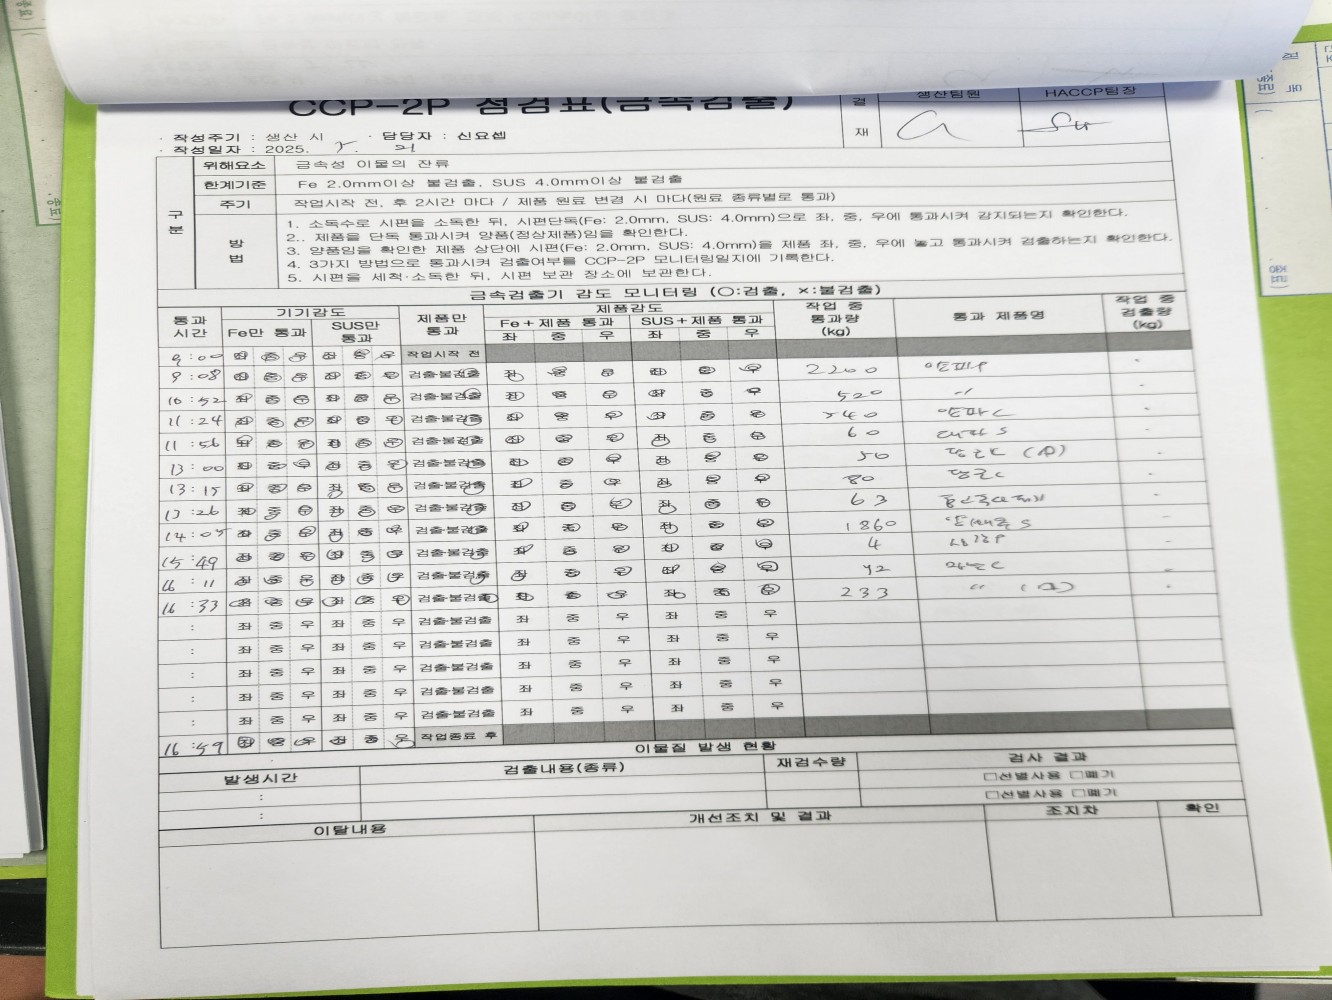 CCP-2P 점검표(금속검출)
결 재 생산팀원 HACCP팀장
· 작성주기 : 생산 시 · 담당자 : 신요셉
· 작성일자 : 2025. . 21
구분
위해요소 금속성 이물의 잔류
한계기준 Fe 2.0mm이상 불검출, SUS 4.0mm이상 불검출
주기 작업시작 전, 후 2시간 마다 / 제품 원료 변경 시 마다(원료 종류별로 통과)
방법
1. 소독수로 시편을 소독한 뒤, 시편단독(Fe: 2.0mm, SUS: 4.0mm)으로 좌, 중, 우에 통과시켜 감지되는지 확인한다.
2.. 제품을 단독 통과시켜 양품(정상제품)임을 확인한다.
3. 양품임을 확인한 제품 상단에 시편(Fe: 2.0mm, SUS: 4.0mm)을 제품 좌, 중, 우에 놓고 통과시켜 검출하는지 확인한다.
4. 3가지 방법으로 통과시켜 검출여부를 CCP-2P 모니터링일지에 기록한다.
5. 시편을 세척·소독한 뒤, 시편 보관 장소에 보관한다.
금속검출기 감도 모니터링 (○:검출, ×:불검출)
통과 시간 기기감도 제품만 통과 제품감도 작업 중 통과량 (kg) 통과 제품명 작업 중 검출량 (kg)
Fe만 통과 SUS만 통과 Fe+제품 통과 SUS+제품 통과
좌 중 우 좌 중 우
9:00 좌 중 우 좌 중 우 작업시작 전
9:08 좌 중 우 좌 중 우 검출·불검출 좌 중 우 좌 중 우 2200 -
10:52 좌 중 우 좌 중 우 검출·불검출 좌 중 우 좌 중 우 520 〃 -
11:24 좌 중 우 좌 중 우 검출·불검출 좌 중 우 좌 중 우 양파C -
11:56 좌 중 우 좌 중 우 검출·불검출 좌 중 우 좌 중 우 60 대파S -
13:00 좌 중 우 좌 중 우 검출·불검출 좌 중 우 좌 중 우 50 -
13:15 좌 중 우 좌 중 우 검출·불검출 좌 중 우 좌 중 우 80 당근C -
13:26 좌 중 우 좌 중 우 검출·불검출 좌 중 우 좌 중 우 63 -
14:05 좌 중 우 좌 중 우 검출·불검출 좌 중 우 좌 중 우 1860 -
15:49 좌 중 우 좌 중 우 검출·불검출 좌 중 우 좌 중 우 4 -
16:11 좌 중 우 좌 중 우 검출·불검출 좌 중 우 좌 중 우 -
16:33 좌 중 우 좌 중 우 검출·불검출 좌 중 우 좌 중 우 233 〃 -
: 좌 중 우 좌 중 우 검출·불검출 좌 중 우 좌 중 우
: 좌 중 우 좌 중 우 검출·불검출 좌 중 우 좌 중 우
: 좌 중 우 좌 중 우 검출·불검출 좌 중 우 좌 중 우
: 좌 중 우 좌 중 우 검출·불검출 좌 중 우 좌 중 우
: 좌 중 우 좌 중 우 검출·불검출 좌 중 우 좌 중 우
16:59 좌 중 우 좌 중 우 작업종료 후
이물질 발생 현황
발생시간 검출내용(종류) 재검수량 검사 결과
: □선별사용 □폐기
: □선별사용 □폐기
이탈내용 개선조치 및 결과 조치자 확인